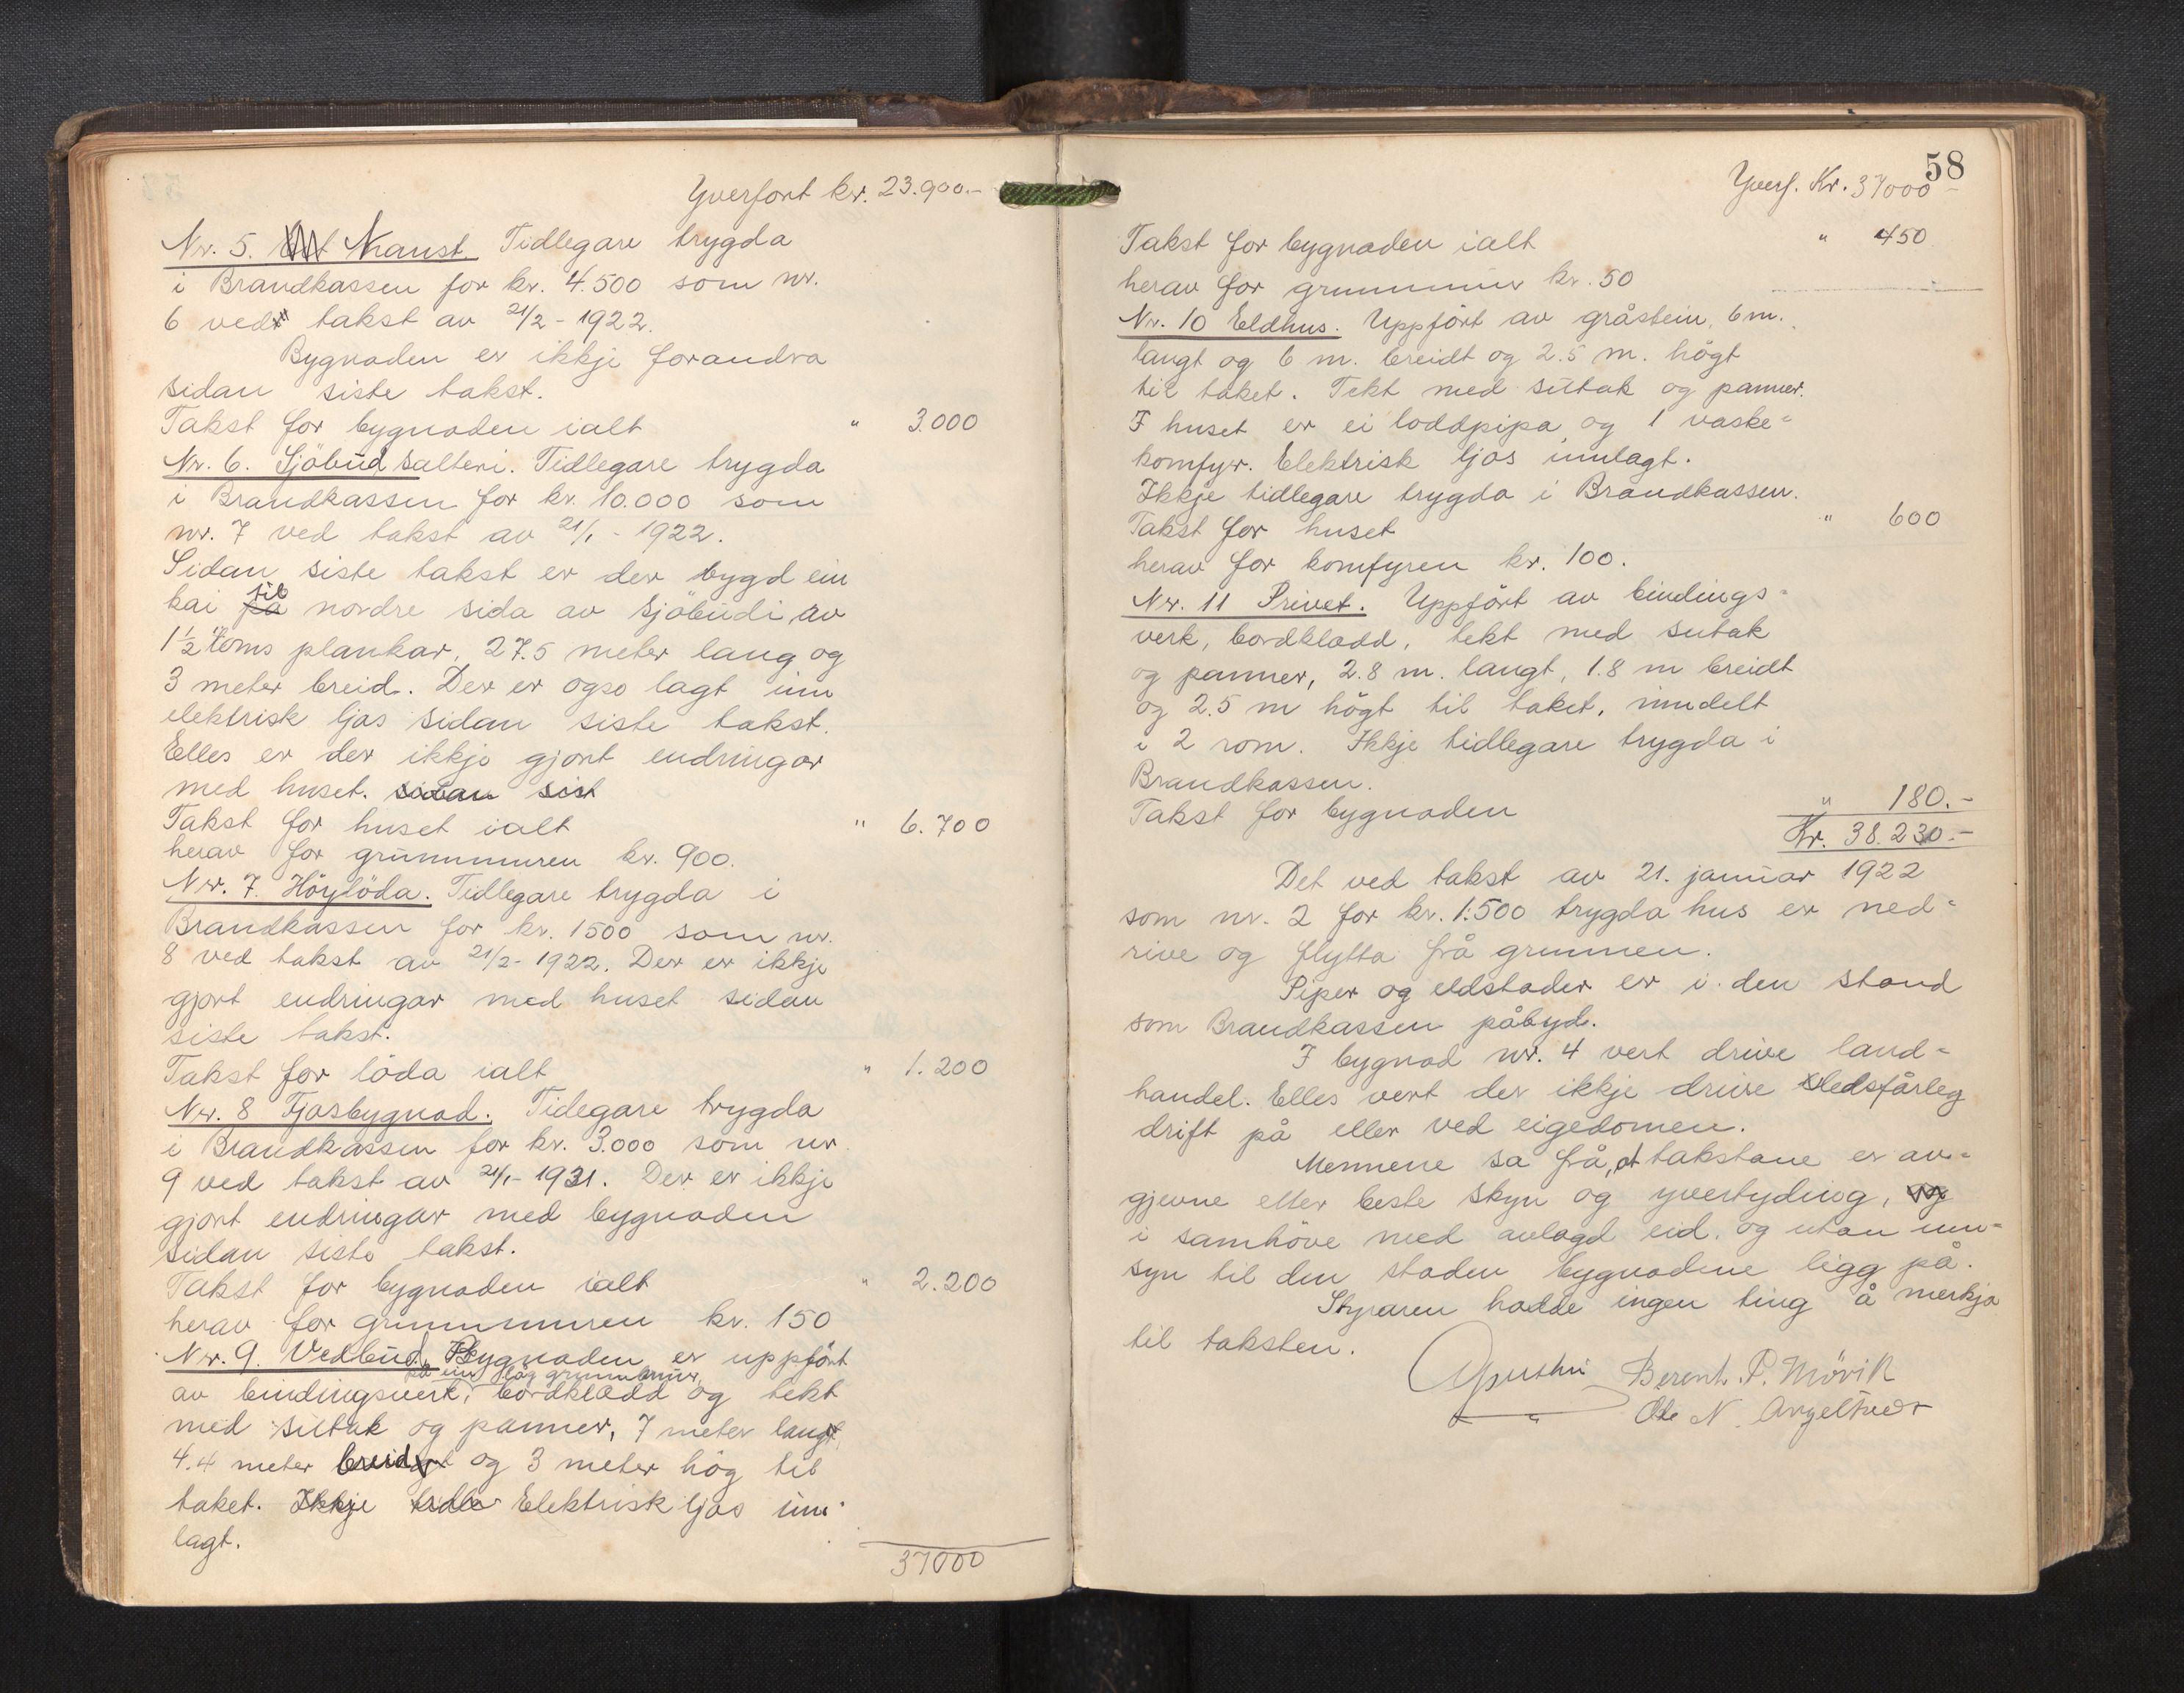 Yverfört kr. 23.900.-
Nr. 5. Naust. Tidlegare trygda
i Brandkassen for kr. 4.500 som nr.
6 ved takst av 21/2 - 1922.
Bygnaden er ikkje forandra
sidan siste takst.
Takst for bygnaden ialt " 3.000
Nr. 6. Sjöbud salteri. Tidlegare trygda
i Brandkassen for kr. 10.000 som
nr. 7 ved takst av 21/1 - 1922.
Sidan siste takst er der bygd ein
kai til nordre sida av sjöbudi, av
1½" toms plankar, 27.5 meter lang og
3 meter breid. Der er ogso lagt inn
elektrisk ljos sidan siste takst.
Elles er der ikkje gjort endringar
med huset. sidan sist
Takst for huset ialt " 6.700
herav for grunnmuren kr. 900.
Nr. 7. Höylöda. Tidlegare trygda i
Brandkassen for kr. 1500 som nr.
8 ved takst av 21/2 - 1922. Der er ikkje
gjort endringar med huset sidan
siste takst.
Takst for löda ialt " 1.200
Nr. 8 Fjosbygnad. Tidegare trygda
i Brandkassen for kr. 3.000 som nr
9 ved takst av 21/1 - 1931. Der er ikkje
gjort endringar med bygnaden
sidan siste takst.
Takst for bygnaden ialt " 2.200
herav for grunnmuren kr. 150
Nr. 9. Vedbud. Bygnaden er uppfört
på ein låg grunnmur
av bindingsverk, bordklædd og tekt
med sutak og panner, 7 meter lang,
4.4 meter breid og 3 meter hög til
taket. Ikkje tidle Elektrisk ljos inn-
lagt.
37000
58
Yverf. Kr. 37000 -
Takst for bygnaden ialt " 450
herav for grunnmur kr. 50
Nr. 10 Eldhus. Uppfört av gråstein, 6 m.
langt og 6 m. breidt og 2.5 m. högt
til taket. Tekt med sutak og panner.
I huset er ei loddpipa og 1 vaske-
komfyr. Elektrisk ljos innlagt.
Ikkje tidlegare trygda i Brandkassen.
Takst for huset " 600
herav for komfyren kr. 100.
Nr. 11 Privet. Uppfört av bindings-
verk, bordklædd, tekt med sutak
og panner, 2.8 m. langt, 1.8 m breidt
og 2.5 m högt til taket, inndelt
i 2 rom. Ikkje tidlegare trygda i
Brandkassen.
Takst for bygnaden " 180.-
Kr. 38.230.-
Det ved takst av 21. januar 1922
som nr. 2 for kr. 1.500 trygda hus er ned-
rive og flytta frå grunnen.
Piper og eldstader er i den stand
som Brandkassen påbyd.
I bygnad nr. 4 vert drive land-
handel. Elles vert der ikkje drive eldsfårleg
drift på eller ved eigedomen.
Mennene sa frå, at takstane er av-
gjevne etter beste skyn og yvertyding,
i samhöve med avlagd eid. og utan inn-
syn til den staden bygnadene ligg på.
Styraren hadde ingen ting å merkja
til taksten.
Berent. P. Mövik
Ole N. Angeltveit